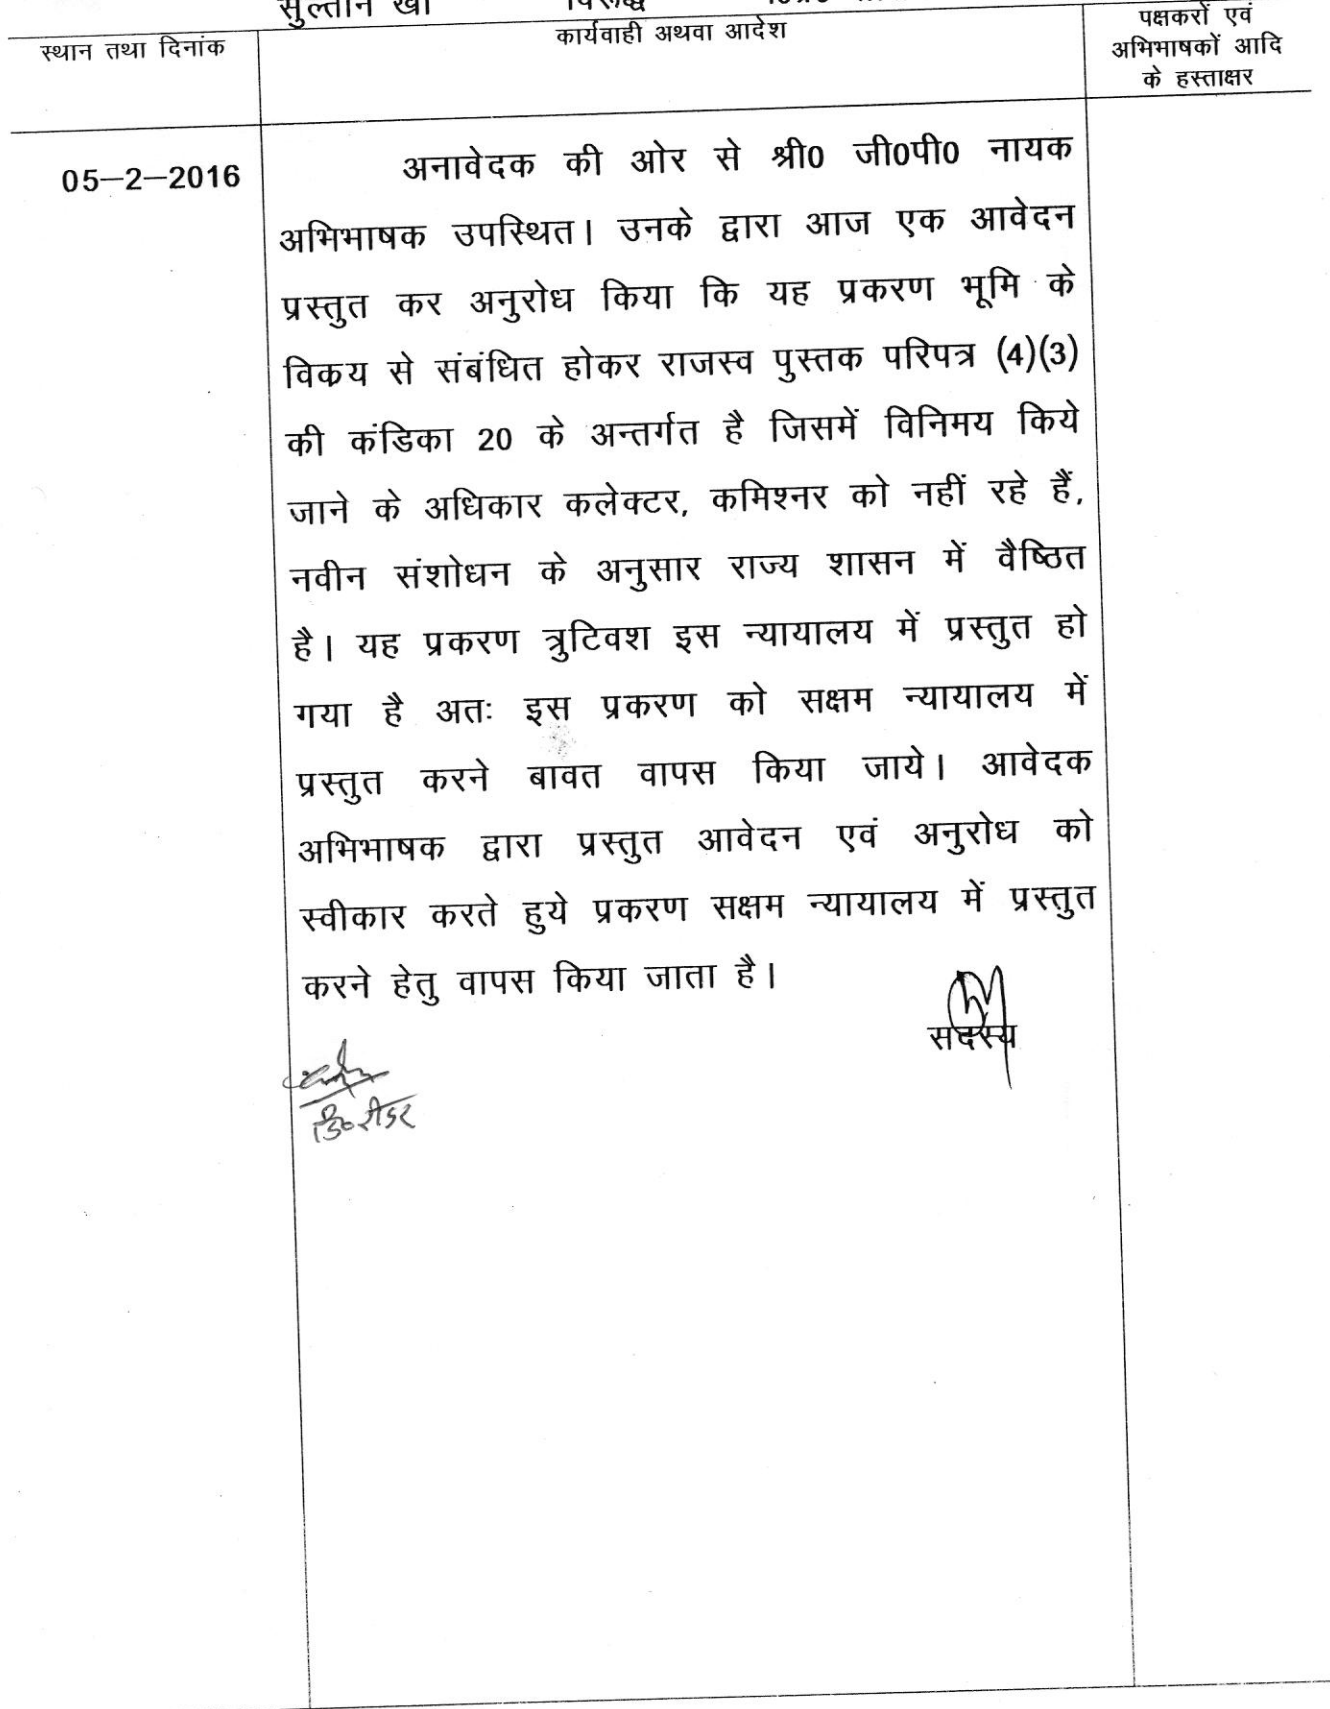 सुल्तान खां विरुद्ध
स्थान तथा दिनांक
कार्यवाही अथवा आदेश
पक्षकरों एवं
अभिभाषकों आदि
के हस्ताक्षर
05–2–2016
अनावेदक की ओर से श्री0 जी0पी0 नायक
अभिभाषक उपस्थित। उनके द्वारा आज एक आवेदन
प्रस्तुत कर अनुरोध किया कि यह प्रकरण भूमि के
विकय से संबंधित होकर राजस्व पुस्तक परिपत्र (4)(3)
की कंडिका 20 के अन्तर्गत है जिसमें विनिमय किये
जाने के अधिकार कलेक्टर, कमिश्नर को नहीं रहे हैं,
नवीन संशोधन के अनुसार राज्य शासन में वैष्ठित
है। यह प्रकरण त्रुटिवश इस न्यायालय में प्रस्तुत हो
गया है अतः इस प्रकरण को सक्षम न्यायालय में
प्रस्तुत करने बावत वापस किया जाये। आवेदक
अभिभाषक द्वारा प्रस्तुत आवेदन एवं अनुरोध को
स्वीकार करते हुये प्रकरण सक्षम न्यायालय में प्रस्तुत
करने हेतु वापस किया जाता है।
सदस्य
रीडर